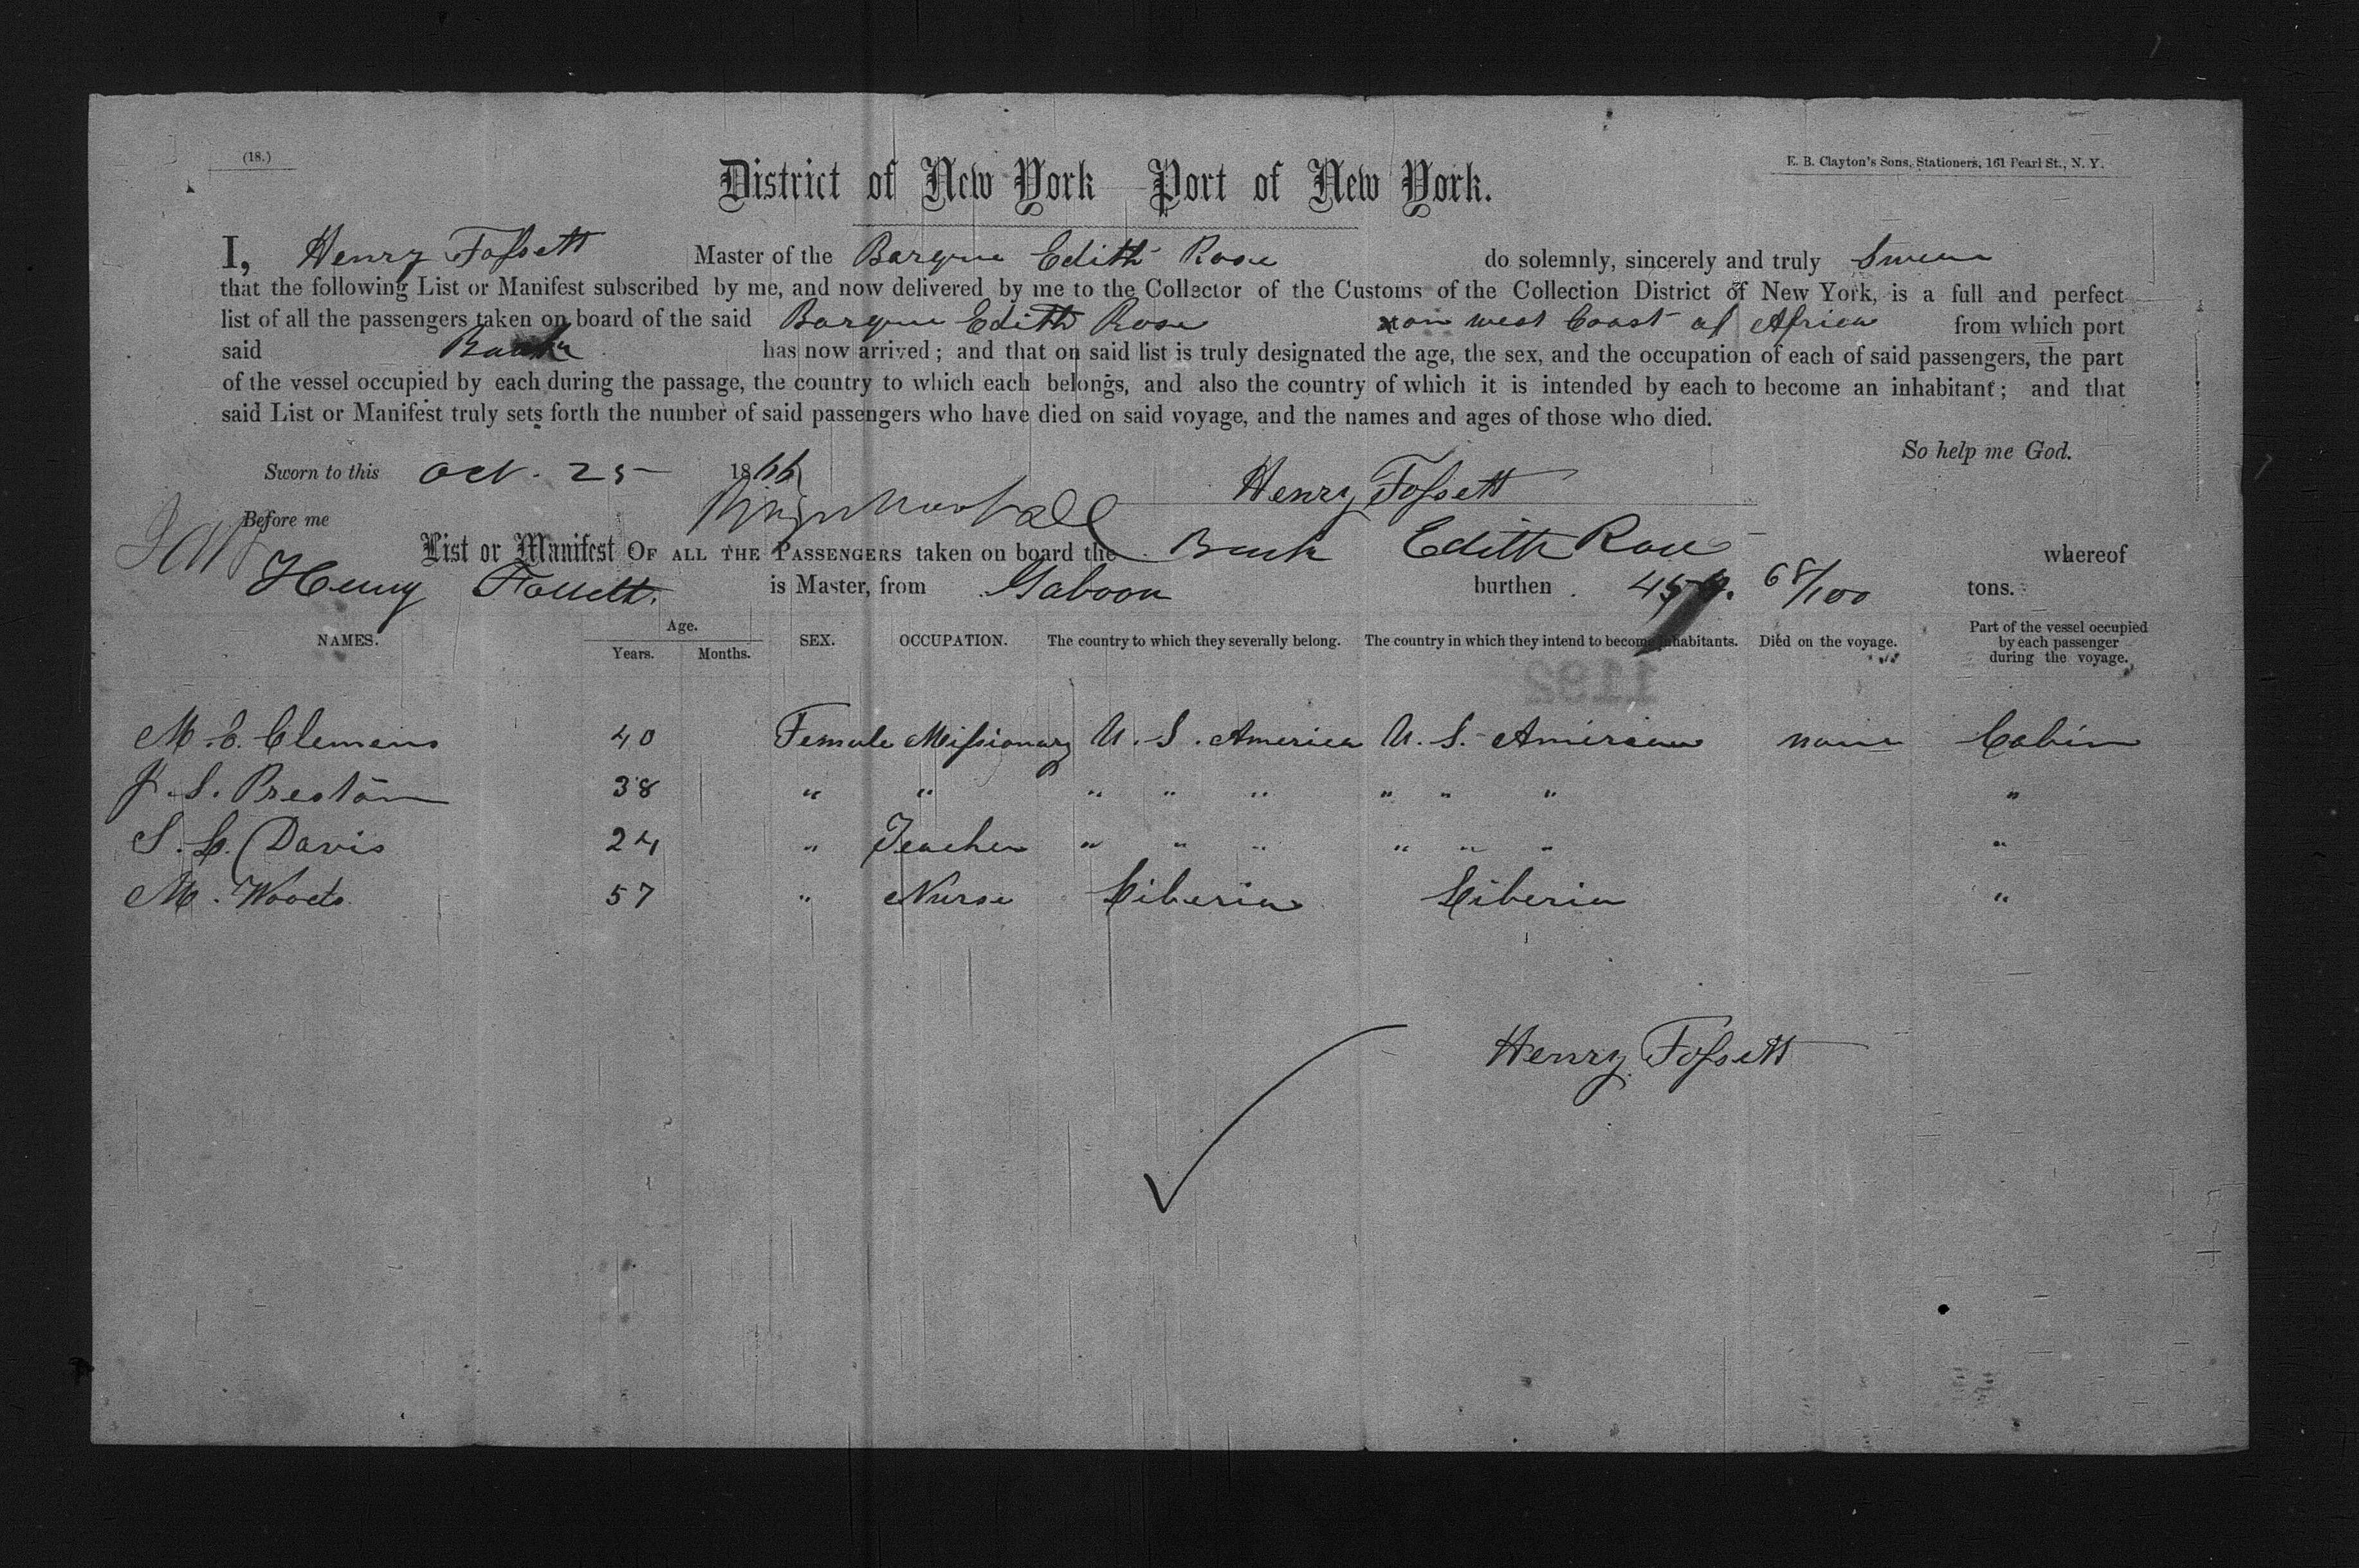 (18.)
E. B. Clayton's Sons, Stationers, 161 Pearl St., N. Y.
District of New York Port of New York.
I, Henry Fossett Master of the Barque Edith Rose do solemnly, sincerely and truly Swear
that the following List or Manifest subscribed by me, and now delivered by me to the Collector of the Customs of the Collection District of New York, is a full and perfect
list of all the passengers taken on board of the said Barque Edith Rose on west Coast of Africa from which port
said Barke has now arrived; and that on said list is truly designated the age, the sex, and the occupation of each of said passengers, the part
of the vessel occupied by each during the passage, the country to which each belongs, and also the country of which it is intended by each to become an inhabitant; and that
said List or Manifest truly sets forth the number of said passengers who have died on said voyage, and the names and ages of those who died.
So help me God.
Sworn to this Oct. 25 1866
Henry Fossett
Before me
List or Manifest OF ALL THE PASSENGERS taken on board the Bark Edith Rose whereof
Henry Fossett. is Master, from Gaboon burthen 68/100 tons.
NAMES. Age. Years. Months. SEX. OCCUPATION. The country to which they severally belong. The country in which they intend to become inhabitants. Died on the voyage. Part of the vessel occupied by each passenger during the voyage.
1192
M. E. Clemens 40 Female Missionary U. S. America U. S. America none Cabin
J. S. Preston 38 " " " " " " " " "
S. L. Davis 24 " Teacher " " " " " " "
M. Woods 57 " Nurse Liberia Liberia "
Henry Fossett